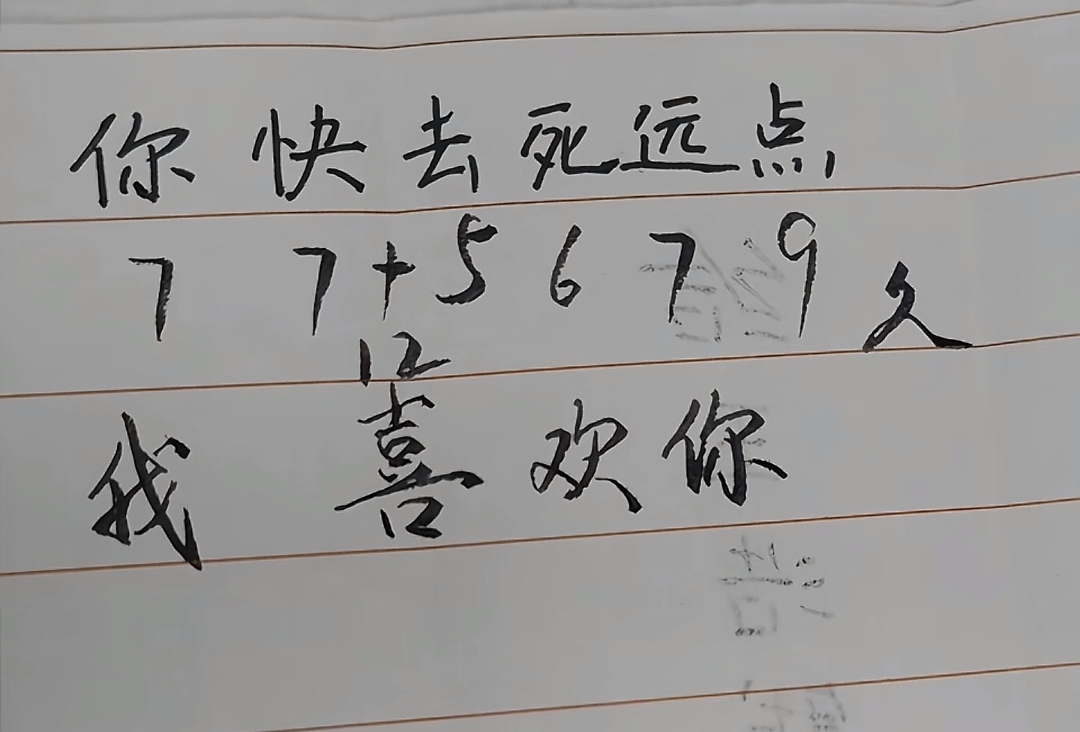 你快去死远点
7 7+5 6 7 9 久
12
我 喜 欢 你